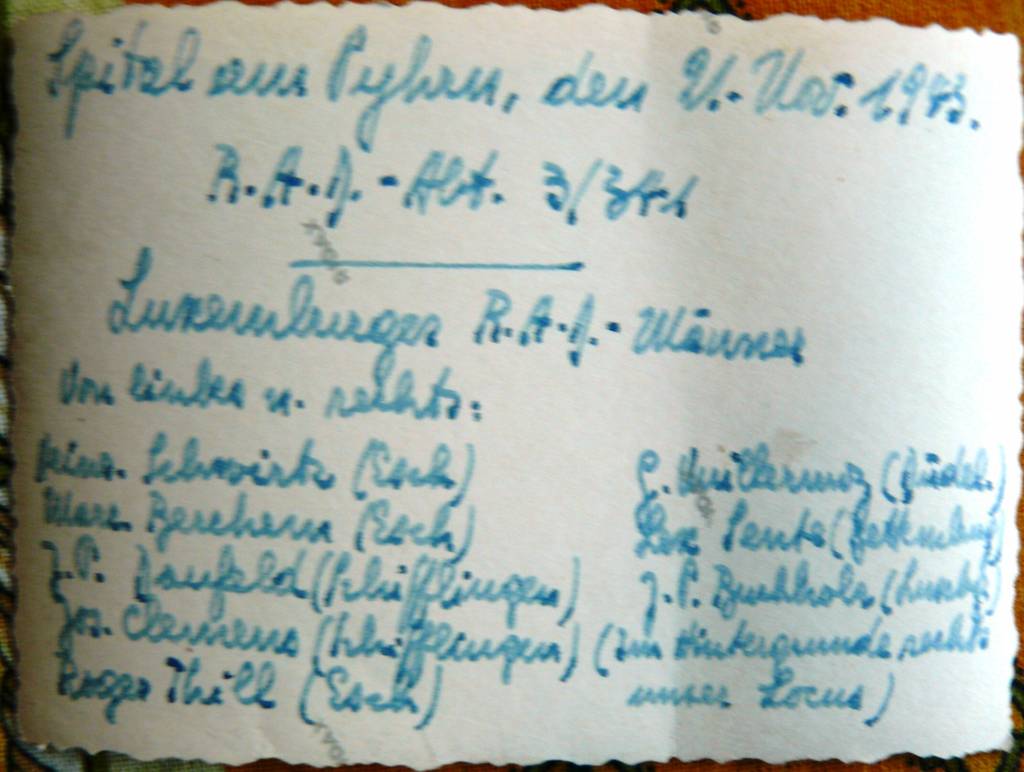 Spital am Pyhrn, den 21. Nov. 1943.
R.A.D.-Abt. 3/341
Luxemburger R.A.D.-Männer
Von links n. rechts:
Schwirtz (Esch)
Marc. Berchem (Esch)
J.P. (Schifflingen)
Jos. Clemens (Schifflingen)
Roger Thill (Esch)
G. Vuillermoz (Düdel.)
Lex (Bettemburg)
J.P. Buchholz (Luxbg.)
(Im Hintergrunde rechts
unser Locus)